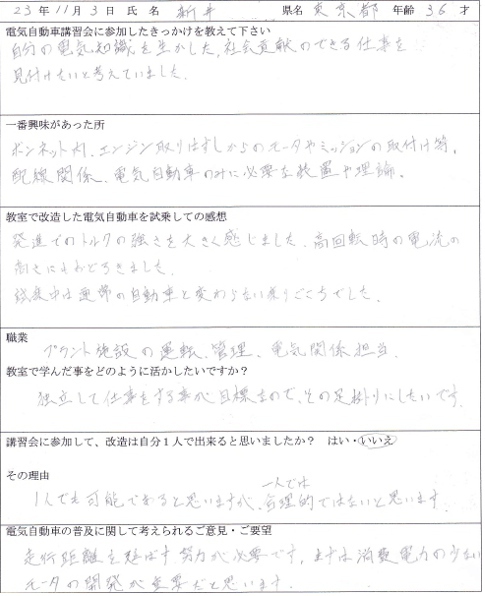 23年11月3日 氏名 新井 県名 東京都 年齢 36才
電気自動車講習会に参加したきっかけを教えて下さい
自分の電気知識を生かした、社会貢献のできる仕事を
見付けたいと考えていました。
一番興味があった所
ボンネット内、エンジン取りはずしからのモータやミッションの取付け等。
配線関係、電気自動車のみに必要な装置や理論。
教室で改造した電気自動車を試乗しての感想
発進でのトルクの強さを大きく感じました。高回転時の電流の
高さにもおどろきました。
試乗中は通常の自動車と変わらない乗りごこちでした。
職業
プラント施設の運転、管理、電気関係担当。
教室で学んだ事をどのように活かしたいですか?
独立して仕事をする事が目標なので、その足掛りにしたいです。
講習会に参加して、改造は自分1人で出来ると思いましたか? はい・いいえ
その理由
一人では
1人でも可能であると思いますが、合理的ではないと思います。
電気自動車の普及に関して考えられるご意見・ご要望
走行距離を延ばす努力が必要です。まずは消費電力の少ない
モータの開発が重要だと思います。